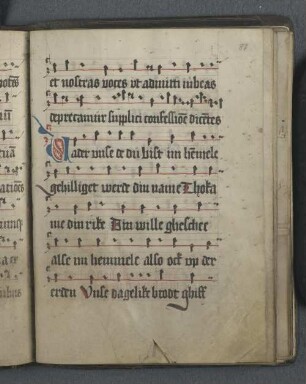 et nostras voces vt admitti iubeas
deprecamur suplici confessione dicentes
Vader vnse de du bist im hemmele
gehilliget werde din name Thoka
me din rike Din wille gheschee
alse im hemmele also ock vp der
erden Vnse dagelike brodt ghiff